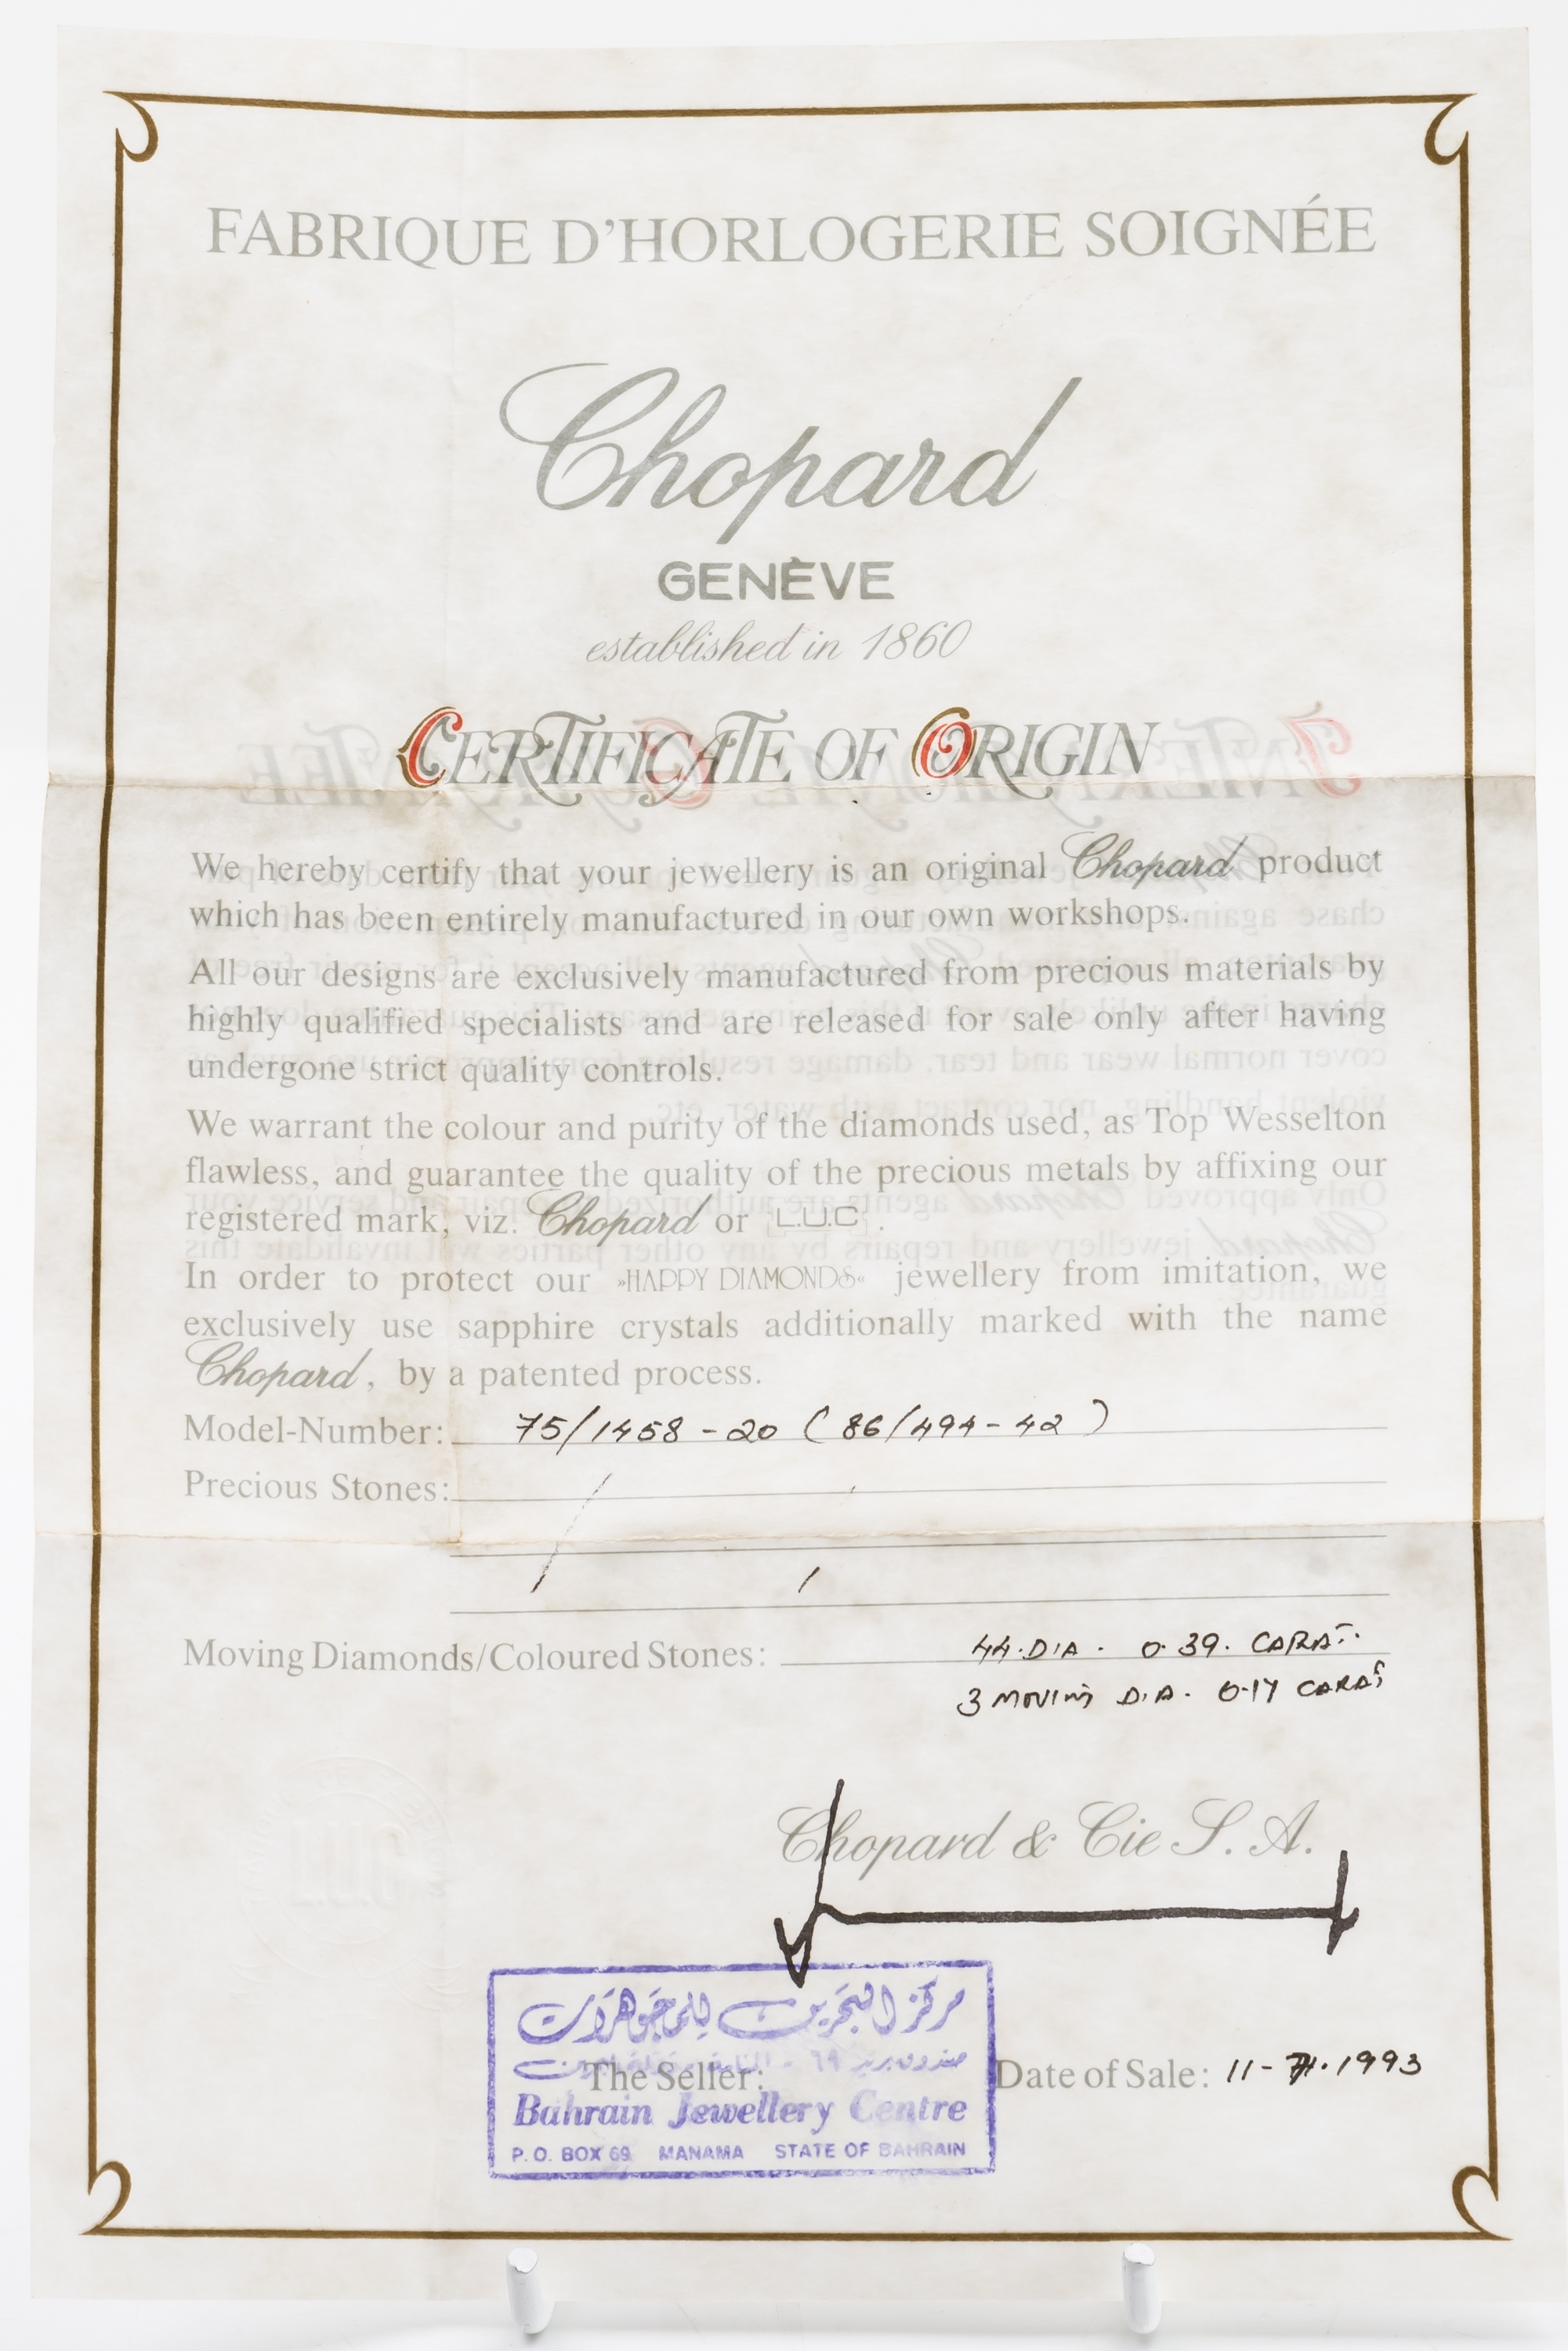 FABRIQUE D'HORLOGERIE SOIGNÉE
Chopard
GENÈVE
established in 1860
CERTIFICATE OF ORIGIN
We hereby certify that your jewellery is an original Chopard product
which has been entirely manufactured in our own workshops.
All our designs are exclusively manufactured from precious materials by
highly qualified specialists and are released for sale only after having
undergone strict quality controls.
We warrant the colour and purity of the diamonds used, as Top Wesselton
flawless, and guarantee the quality of the precious metals by affixing our
registered mark, viz. Chopard or L.U.C .
In order to protect our »HAPPY DIAMONDS« jewellery from imitation, we
exclusively use sapphire crystals additionally marked with the name
Chopard, by a patented process.
Model-Number: 75/1458-20 (86/494-42)
Precious Stones:
Moving Diamonds/Coloured Stones: 44.DIA. 0.39. CARAT.
3 MOVING DIA. 0.17 CARAT
Chopard & Cie S.A.
مركز البحرين للمجوهرات
صندوق بريد ٦٩
The Seller: Date of Sale: 11-7.1993
Bahrain Jewellery Centre
P.O. BOX 69 MANAMA STATE OF BAHRAIN